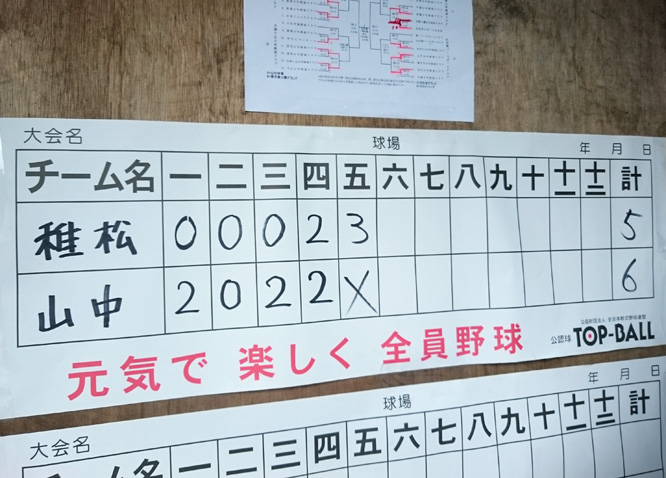 大会名 球場 年 月 日
チーム名 一 二 三 四 五 六 七 八 九 十 十一 十二 計
稚松 0 0 0 2 3 5
山中 2 0 2 2 X 6
元気で 楽しく 全員野球
公益財団法人 全日本軟式野球連盟
公認球 TOP-BALL
大会名 球場 年 月 日
チーム名 一 二 三 四 五 六 七 八 九 十 十一 十二 計